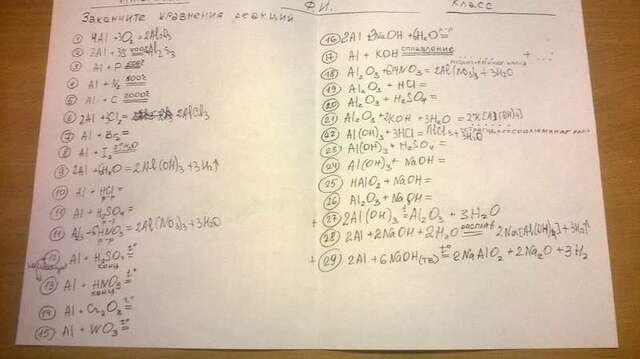 Ф.И. класс
Закончите уравнения реакций
1 4Al + 3O₂ = 2Al₂O₃
2 2Al + 3S = Al₂S₃
3 Al + P 500°
4 Al + N₂ 800°
5 Al + C 2000°
6 2Al + 3Cl₂ = 2AlCl₃
7 Al + Br₂ =
8 Al + I₂ =
9 2Al + 6H₂O = 2Al(OH)₃ + 3H₂↑
10 Al + HCl =
р-р
11 Al + H₂SO₄ =
р-р
11 + 6HNO₃ = 2Al(NO₃)₃ + 3H₂O
р-р
12 Al + H₂SO₄ t°=
конц
13 Al + HNO₃ t°=
конц
14 Al + Cr₂O₃ t°=
15 Al + WO₃ t°=
16 2Al + NaOH + 6H₂O =
17 Al + KOH сплавление
18 Al₂O₃ + 6HNO₃ = 2Al(NO₃)₃ + 3H₂O
19 Al₂O₃ + HCl =
20 Al₂O₃ + H₂SO₄ =
21 Al₂O₃ + 2KOH + 3H₂O = 2K[Al(OH)₄]
22 Al(OH)₃ + 3HCl = AlCl₃ + 3H₂O
23 Al(OH)₃ + H₂SO₄ =
24 Al(OH)₃ + NaOH =
25 HAlO₂ + NaOH =
26 Al₂O₃ + NaOH =
+ 27 2Al(OH)₃ t°= Al₂O₃ + 3H₂O
28 2Al + 2NaOH + 2H₂O расплав 2Na[Al(OH)₄] + 3H₂↑
+ 29 2Al + 6NaOH(тв) t°= 2NaAlO₂ + 2Na₂O + 3H₂